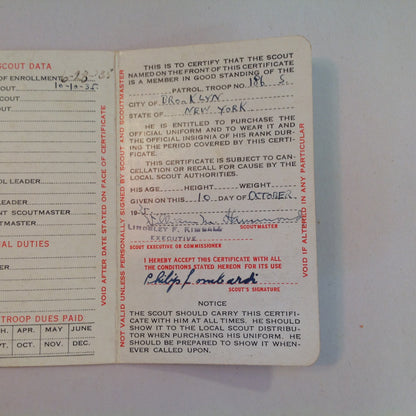 SCOUT DATA
OF ENROLLMENT
SCOUT 10-10-35
OL LEADER
LEADER
NT SCOUTMASTER
TMASTER
AL DUTIES
TROOP DUES PAID
H. APR. MAY JUNE
PT. OCT. NOV. DEC.
VOID AFTER DATE STATED ON FACE OF CERTIFICATE
NOT VALID UNLESS PERSONALLY SIGNED BY SCOUT AND SCOUTMASTER
THIS IS TO CERTIFY THAT THE SCOUT
NAMED ON THE FRONT OF THIS CERTIFICATE
IS A MEMBER IN GOOD STANDING OF THE
PATROL, TROOP NO. 186
CITY OF BROOKLYN
STATE OF NEW YORK
HE IS ENTITLED TO PURCHASE THE
OFFICIAL UNIFORM AND TO WEAR IT AND
THE OFFICIAL INSIGNIA OF HIS RANK DUR-
ING THE PERIOD COVERED BY THIS CERTIFI-
CATE.
THIS CERTIFICATE IS SUBJECT TO CAN-
CELLATION OR RECALL FOR CAUSE BY THE
LOCAL SCOUT AUTHORITIES.
HIS AGE HEIGHT WEIGHT
GIVEN ON THIS 10 DAY OF OCTOBER
19
SCOUTMASTER
EXECUTIVE
SCOUT EXECUTIVE OR COMMISSIONER
I HEREBY ACCEPT THIS CERTIFICATE WITH ALL
THE CONDITIONS STATED HEREON FOR ITS USE
Philip Lombardi
SCOUT'S SIGNATURE
NOTICE
THE SCOUT SHOULD CARRY THIS CERTIFI-
CATE WITH HIM AT ALL TIMES. HE SHOULD
SHOW IT TO THE LOCAL SCOUT DISTRIBU-
TOR WHEN PURCHASING HIS UNIFORM. HE
SHOULD BE PREPARED TO SHOW IT WHEN-
EVER CALLED UPON.
VOID IF ALTERED IN ANY PARTICULAR